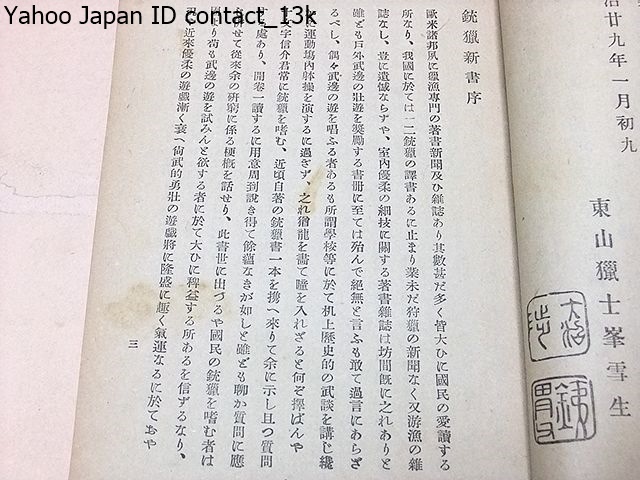 Yahoo Japan ID contact_13k
治廿九年一月初九
東山獵士峯雪生
銃獵新書序
歐米諸邦夙に獵漁專門の著書新聞及ひ雜誌あり其數甚だ多く皆大ひに國民の愛讀する
所なり、我國に於ては一二銃獵の譯書あるに止まり業未だ狩獵の新聞なく又游漁の雜
誌なし、豈に遺憾ならずや、室内優柔の細技に關する著書雜誌は坊間既に之れありと
雖ども戸外武邊の壯遊を奬勵する書冊に至ては殆んで絕無と言ふも敢て過言にあらざ
るべし、偶々武邊の遊を唱ふる者あるも所謂學校等に於て机上歷史的の武談を講じ纔
に運動塲內躰操を演するに過ぎず、之れ猶龍を畵て瞳を入れざると何ぞ擇ばんや
文字信介君常に銃獵を嗜む、近頃自著の銃獵書一本を携へ來りて余に示し且つ質問
する處あり、開卷一讀するに用意周到說き得て餘蘊なきが如しと雖ども聊か質問に應
併せて從來余の研窮に係る梗槪を話せり、此書世に出づるや國民の銃獵を嗜む者は
より苟も武邊の遊を試みんと欲する者に於て大ひに稗益する所あるを信ずるなり、
近來優柔の遊戲漸く衰へ尙武的勇壯の遊戲將に隆盛に趣く氣運なるに於ておや
三